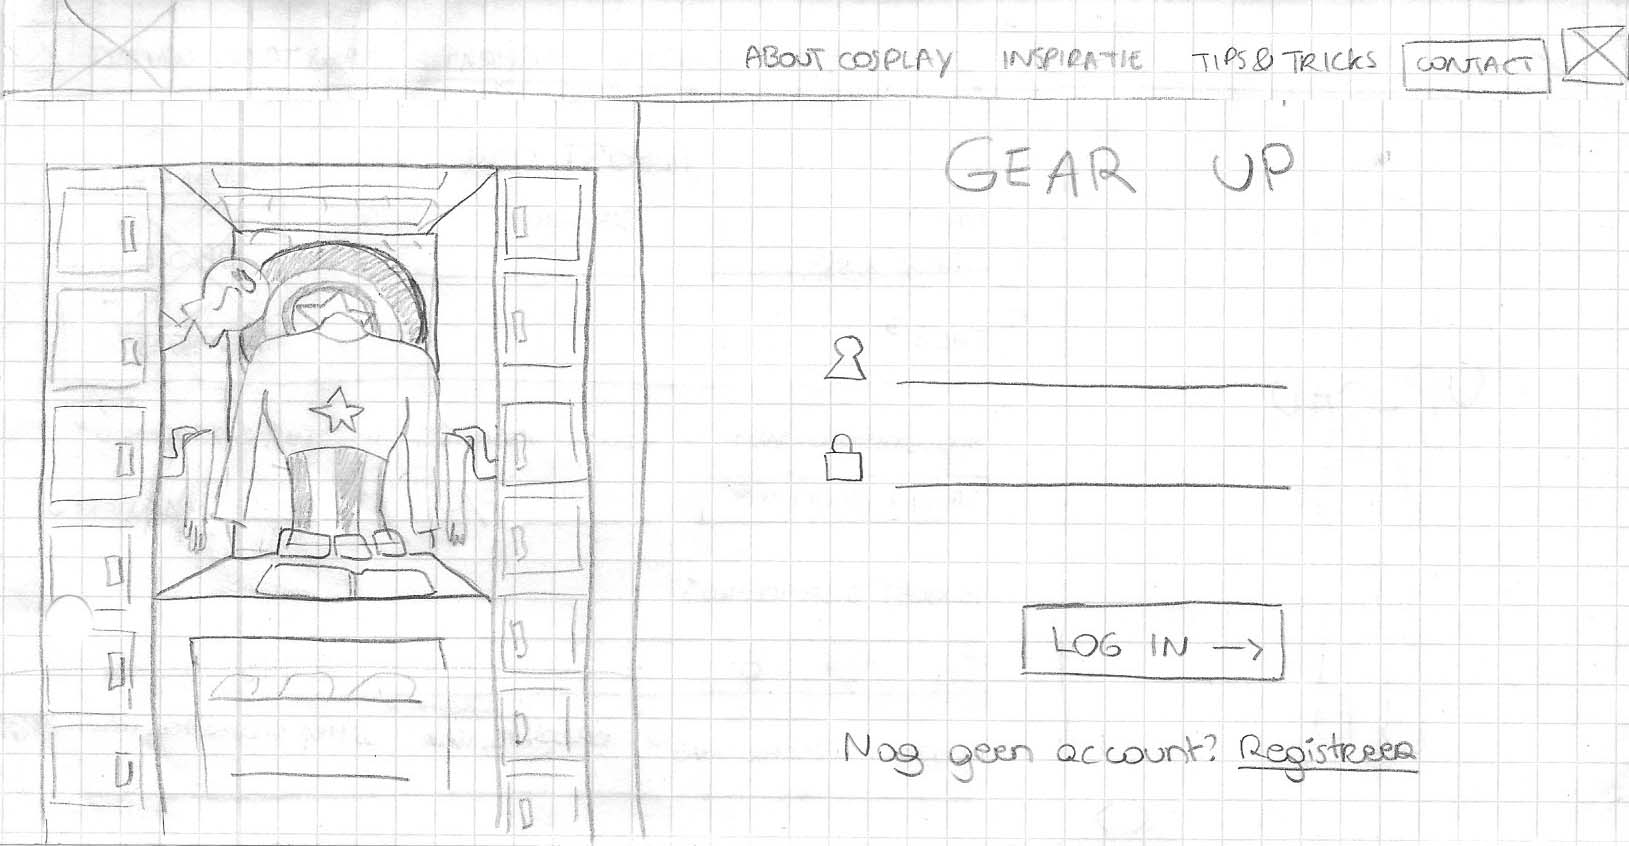 ABOUT COSPLAY INSPIRATIE TIPS & TRICKS CONTACT
GEAR UP
LOG IN →
Nog geen account? Registreer